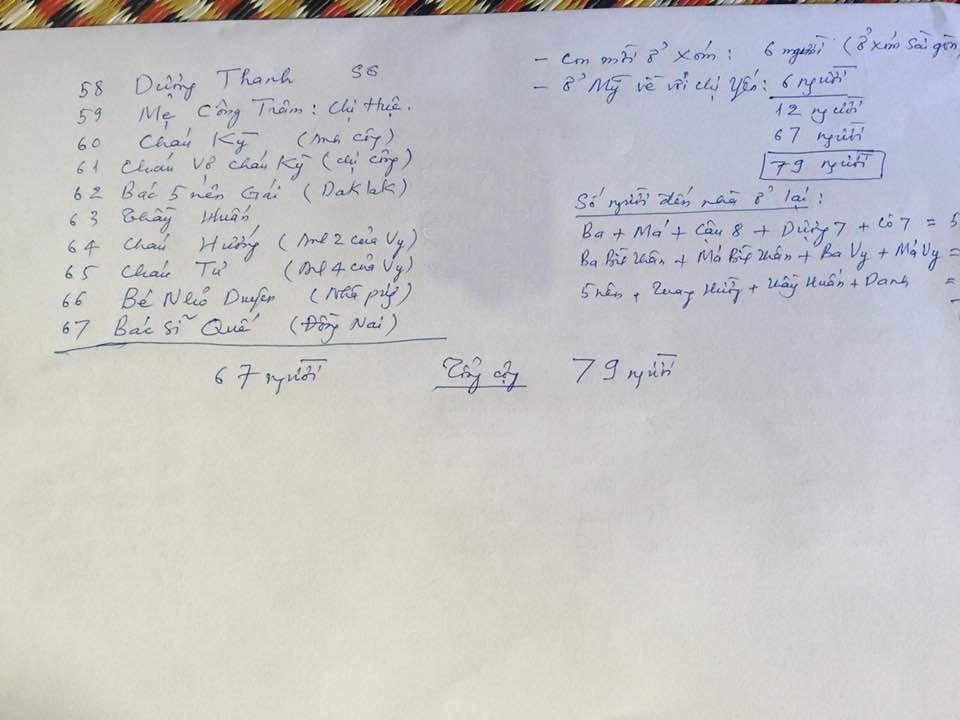 58 Dượng Thanh SG
59 Mẹ Công Trâm : Chị Huệ.
60 Cháu Kỳ (Anh Công)
61 Cháu Vợ cháu Kỳ (chị Công)
62 Bác 5 nên Gái (Daklak)
63 Thầy Huấn
64 Cháu Hướng (Anh 2 của Vy)
65 Cháu Tư (Anh 4 của Vy)
66 Bé Nhỏ Duyên
67 Bác Sĩ Quế (Đồng Nai)
67 người
Tổng cộng 79 người
- Con mời ở xóm : 6 người (ở xóm Sài gòn
- ở Mỹ về với chị Yến : 6 người
12 người
67 người
79 người
Số người đến nhà ở lại :
Ba + Má + Cậu 8 + Dượng 7 + Cô 7 = 5
Ba + Má + Ba Vy + Má Vy =
5 nên + Hùng + Thầy Huấn + Danh =